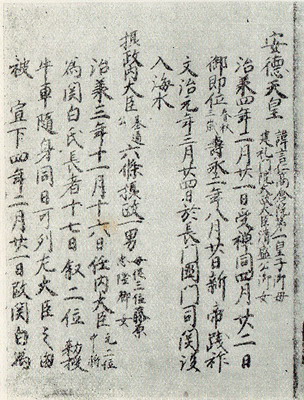 安徳天皇 諱言仁高倉院第一皇子御母
建礼門院太政大臣清盛公御女
治承四年二月廿一日受禅同四月廿二日
御即位 春秋三歳 壽永二年八月廿日新帝践祚
文治元年三月廿四日於長門國門司関没
入海水
摂政内大臣 基通公 六條摂政一男 母従三位藤原
忠隆御女
治承三年十一月十六日任内大臣 元二位中将
為関白氏長者十七日叙二位勅授
牛車随身同日可列左大臣之由
被宣下四年二月廿一日改関白為